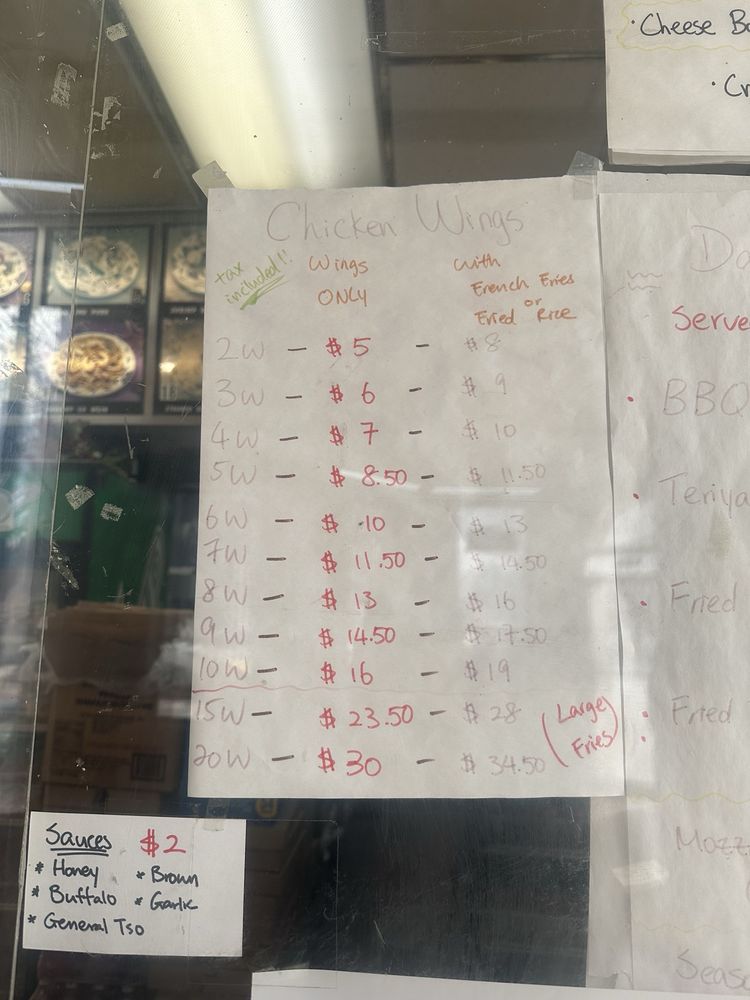 Cheese
Chicken Wings
tax included!!
Wings ONLY
with French Fries or Fried Rice
2W - $5 - $8
3W - $6 - $9
4W - $7 - $10
5W - $8.50 - $11.50
6W - $10 - $13
7W - $11.50 - $14.50
8W - $13 - $16
9W - $14.50 - $17.50
10W - $16 - $19
15W - $23.50 - $28 (Large
20W - $30 - $34.50 Fries)
Serve
• BBQ
• Teriya
• Fried
• Fried
Mozz
Seas
Sauces $2
* Honey * Brown
* Buffalo * Garlic
* General Tso